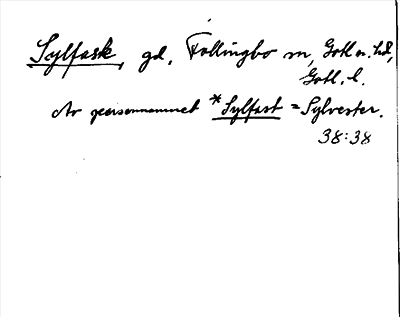 Sylfask, gd, Follingbo sn, Gotl n. hd,
Gotl. l.
Av personnamnet *Sylfast = Sylvester.
38:38